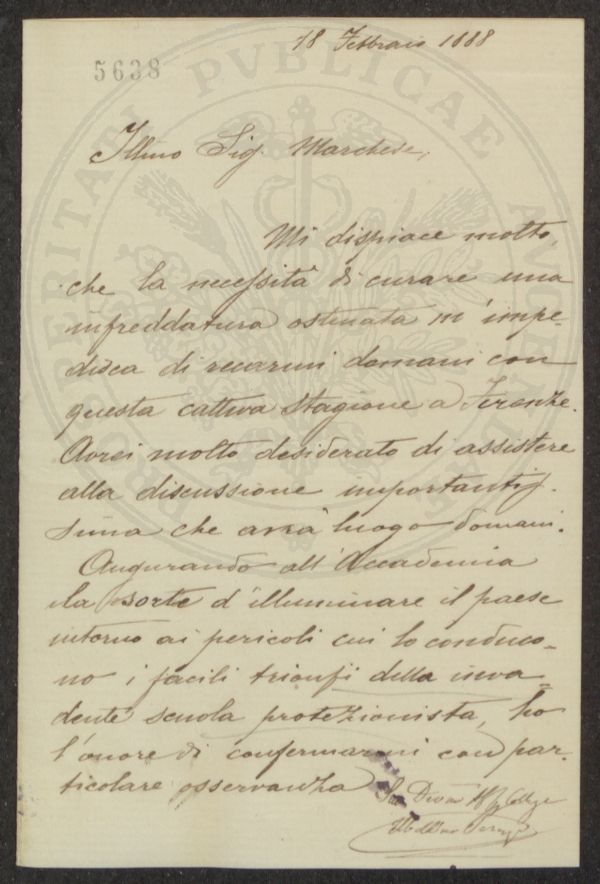 18 Febbraio 1888
5638
PROSPERITATI PVBLICAE AVGENDAE
Illmo Sig. Marchese,
Mi dispiace molto,
che la necessità di curare una
infreddatura ostinata m'impe-
disca di recarmi domani con
questa cattiva stagione a Firenze.
Avrei molto desiderato di assistere
alla discussione importantis-
sima che avrà luogo domani.
Augurando all'Accademia
la sorte d'illuminare il paese
intorno ai pericoli cui lo conduco-
no i facili trionfi della inva-
dente scuola protezionista, ho
l'onore di confermarmi con par-
ticolare osservanza
Suo Devmo